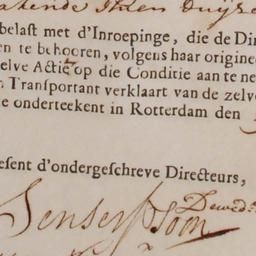 belast met d'Inroepinge, die de Dir
en te behooren, volgens haar origine
elve Actie op die Conditie aan te ne
n Transportant verklaart van de zelv
te onderteekent in Rotterdam den
esent d'ondergeschreve Directeurs,